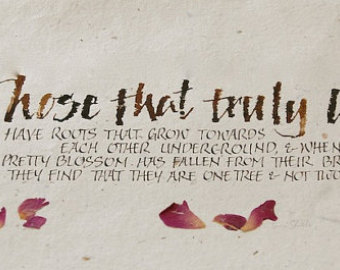 hose that truly
HAVE ROOTS THAT GROW TOWARDS
EACH OTHER UNDERGROUND, & WHEN
PRETTY BLOSSOM HAS FALLEN FROM THEIR BR
THEY FIND THAT THEY ARE ONE TREE & NOT TWO